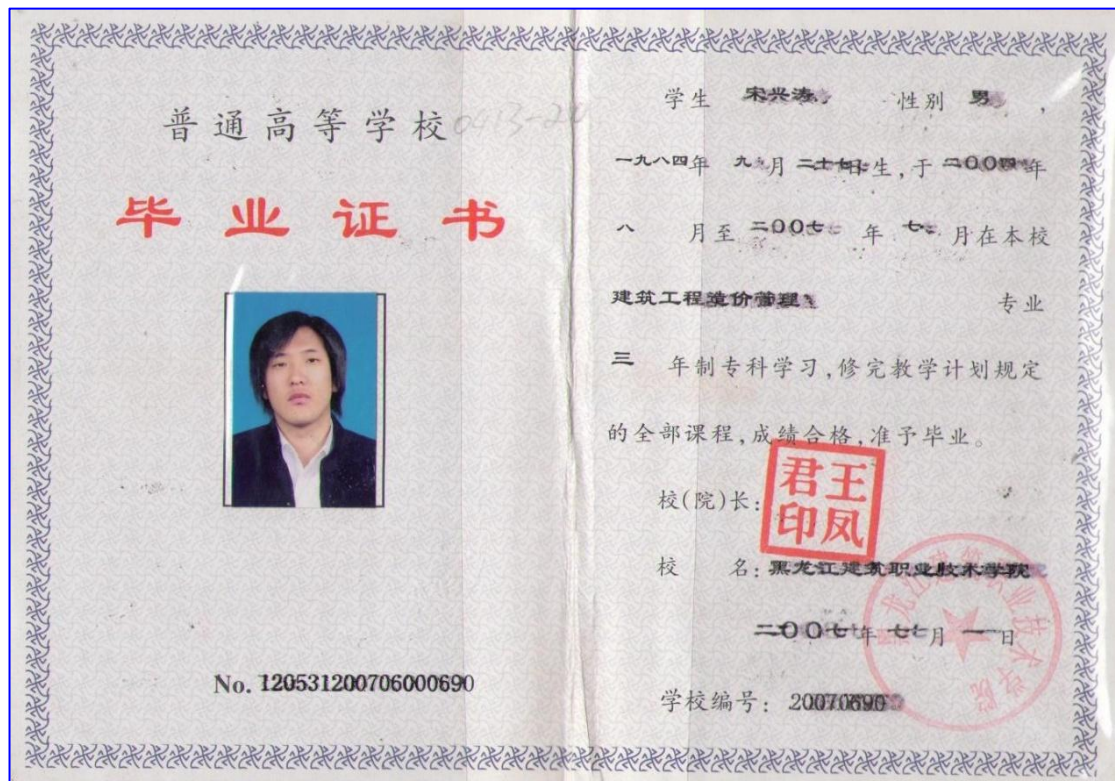 普通高等学校
毕业证书
No. 120531200706000690
学生 宋兴涛, 性别 男,
一九八四年 九月 二十七日生,于 二〇〇四年
八 月至 二〇〇七 年 七 月在本校
建筑工程造价管理 专业
三 年制专科学习,修完教学计划规定
的全部课程,成绩合格,准予毕业。
校(院)长:
王凤君印
校 名: 黑龙江建筑职业技术学院
二〇〇七年 七月 一日
学校编号: 20070690
黑龙江建筑职业技术学院